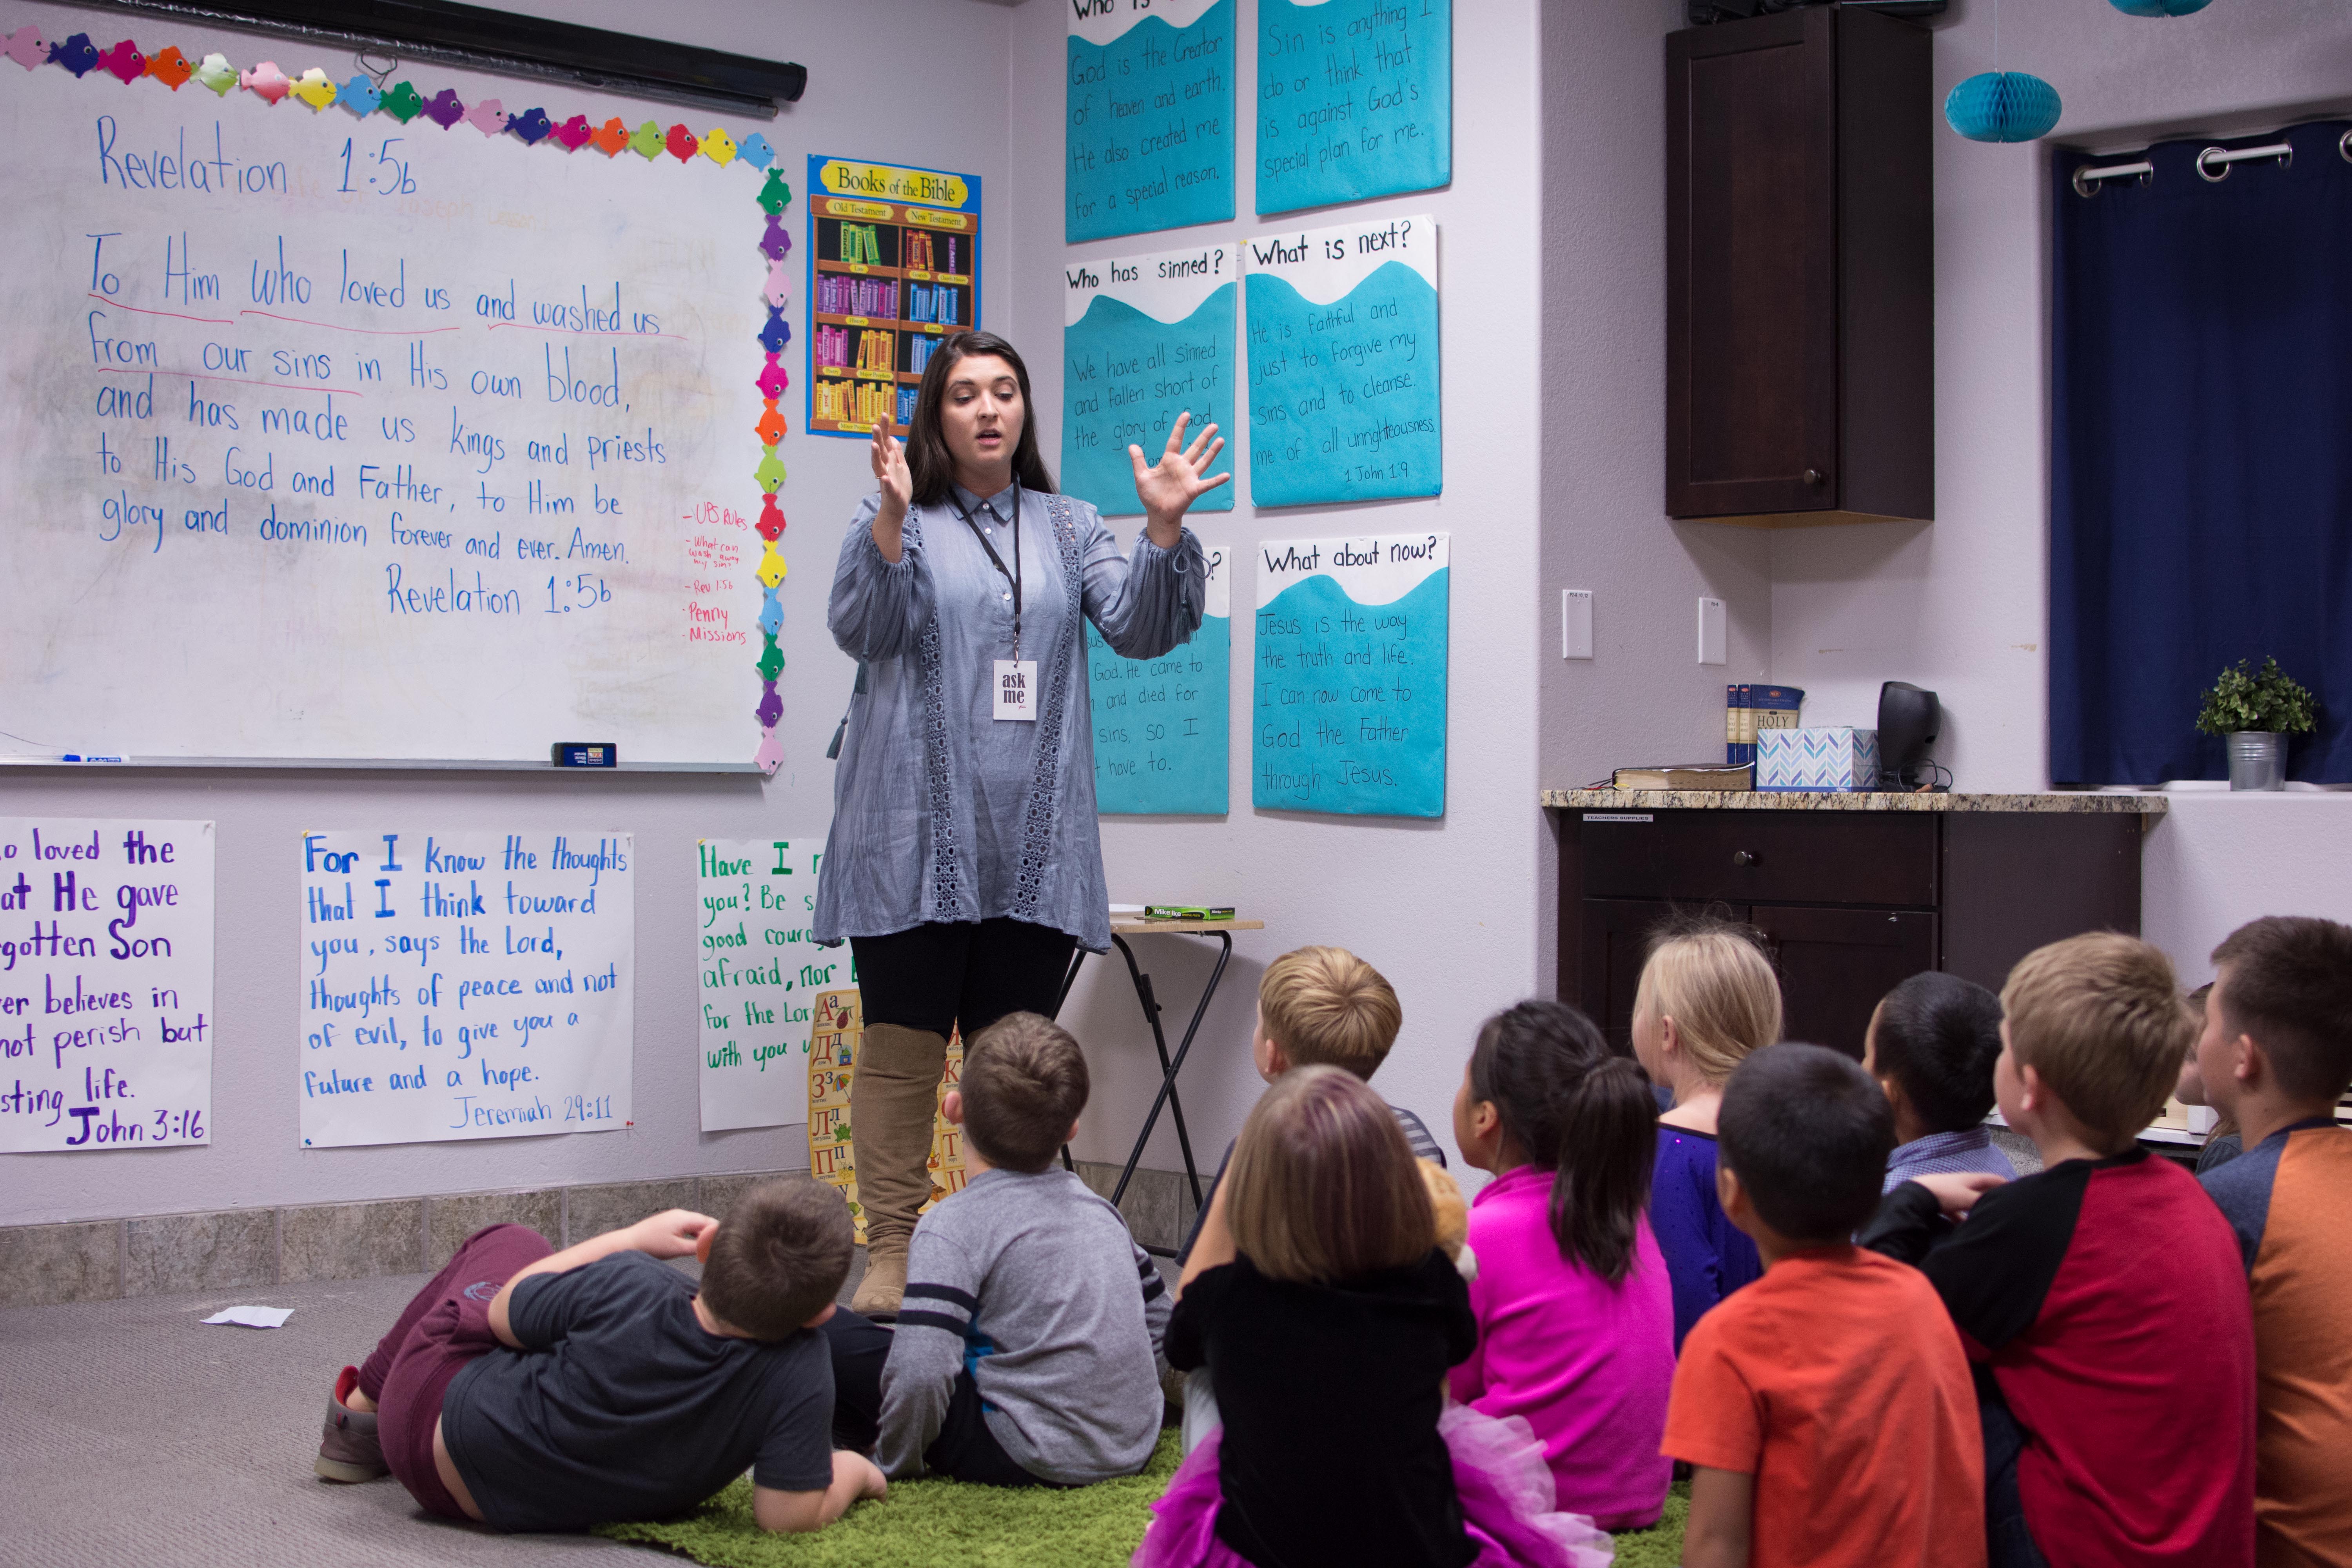 Revelation 1:5b
To Him who loved us and washed us
from our sins in His own blood,
and has made us kings and priests
to His God and Father, to Him be
glory and dominion forever and ever. Amen.
Revelation 1:5b
- UBS Rules
- What can
wash away
my sin?
- Rev 1:5b
- Penny
- Missions
Books of the Bible
Old Testament
New Testament
Who is
God is the Creator
of heaven and earth.
He also created me
for a special reason.
Sin is anything I
do or think that
is against God's
special plan for me.
Who has sinned?
We have all sinned
and fallen short of
the glory of God
What is next?
He is faithful and
just to forgive my
sins and to cleanse
me of all unrighteousness.
1 John 1:9
?
God. He came to
and died for
sins, so I
have to.
What about now?
Jesus is the way
the truth and life.
I can now come to
God the Father
through Jesus.
ask
me
HOLY
TEACHERS SUPPLIES
Mike and Ike
o loved the
at He gave
gotten Son
er believes in
not perish but
sting life.
John 3:16
For I know the thoughts
that I think toward
you, says the Lord,
thoughts of peace and not
of evil, to give you a
future and a hope.
Jeremiah 29:11
Have I
you? Be s
good coura
afraid, nor
for the Lor
with you
Аа
Дд
Зз
Лл
Пп
У
К
Т
Ц